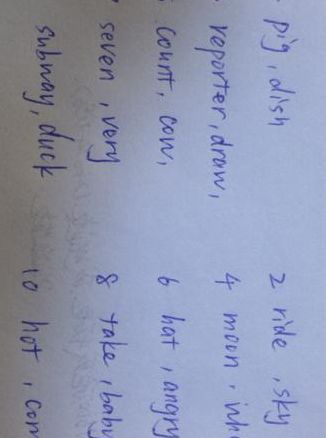 pig, dish
2 ride, sky
reporter, draw,
4 moon,
count, cow,
6 hat, angry
seven, very
8 take, baby
subway, duck
10 hot,